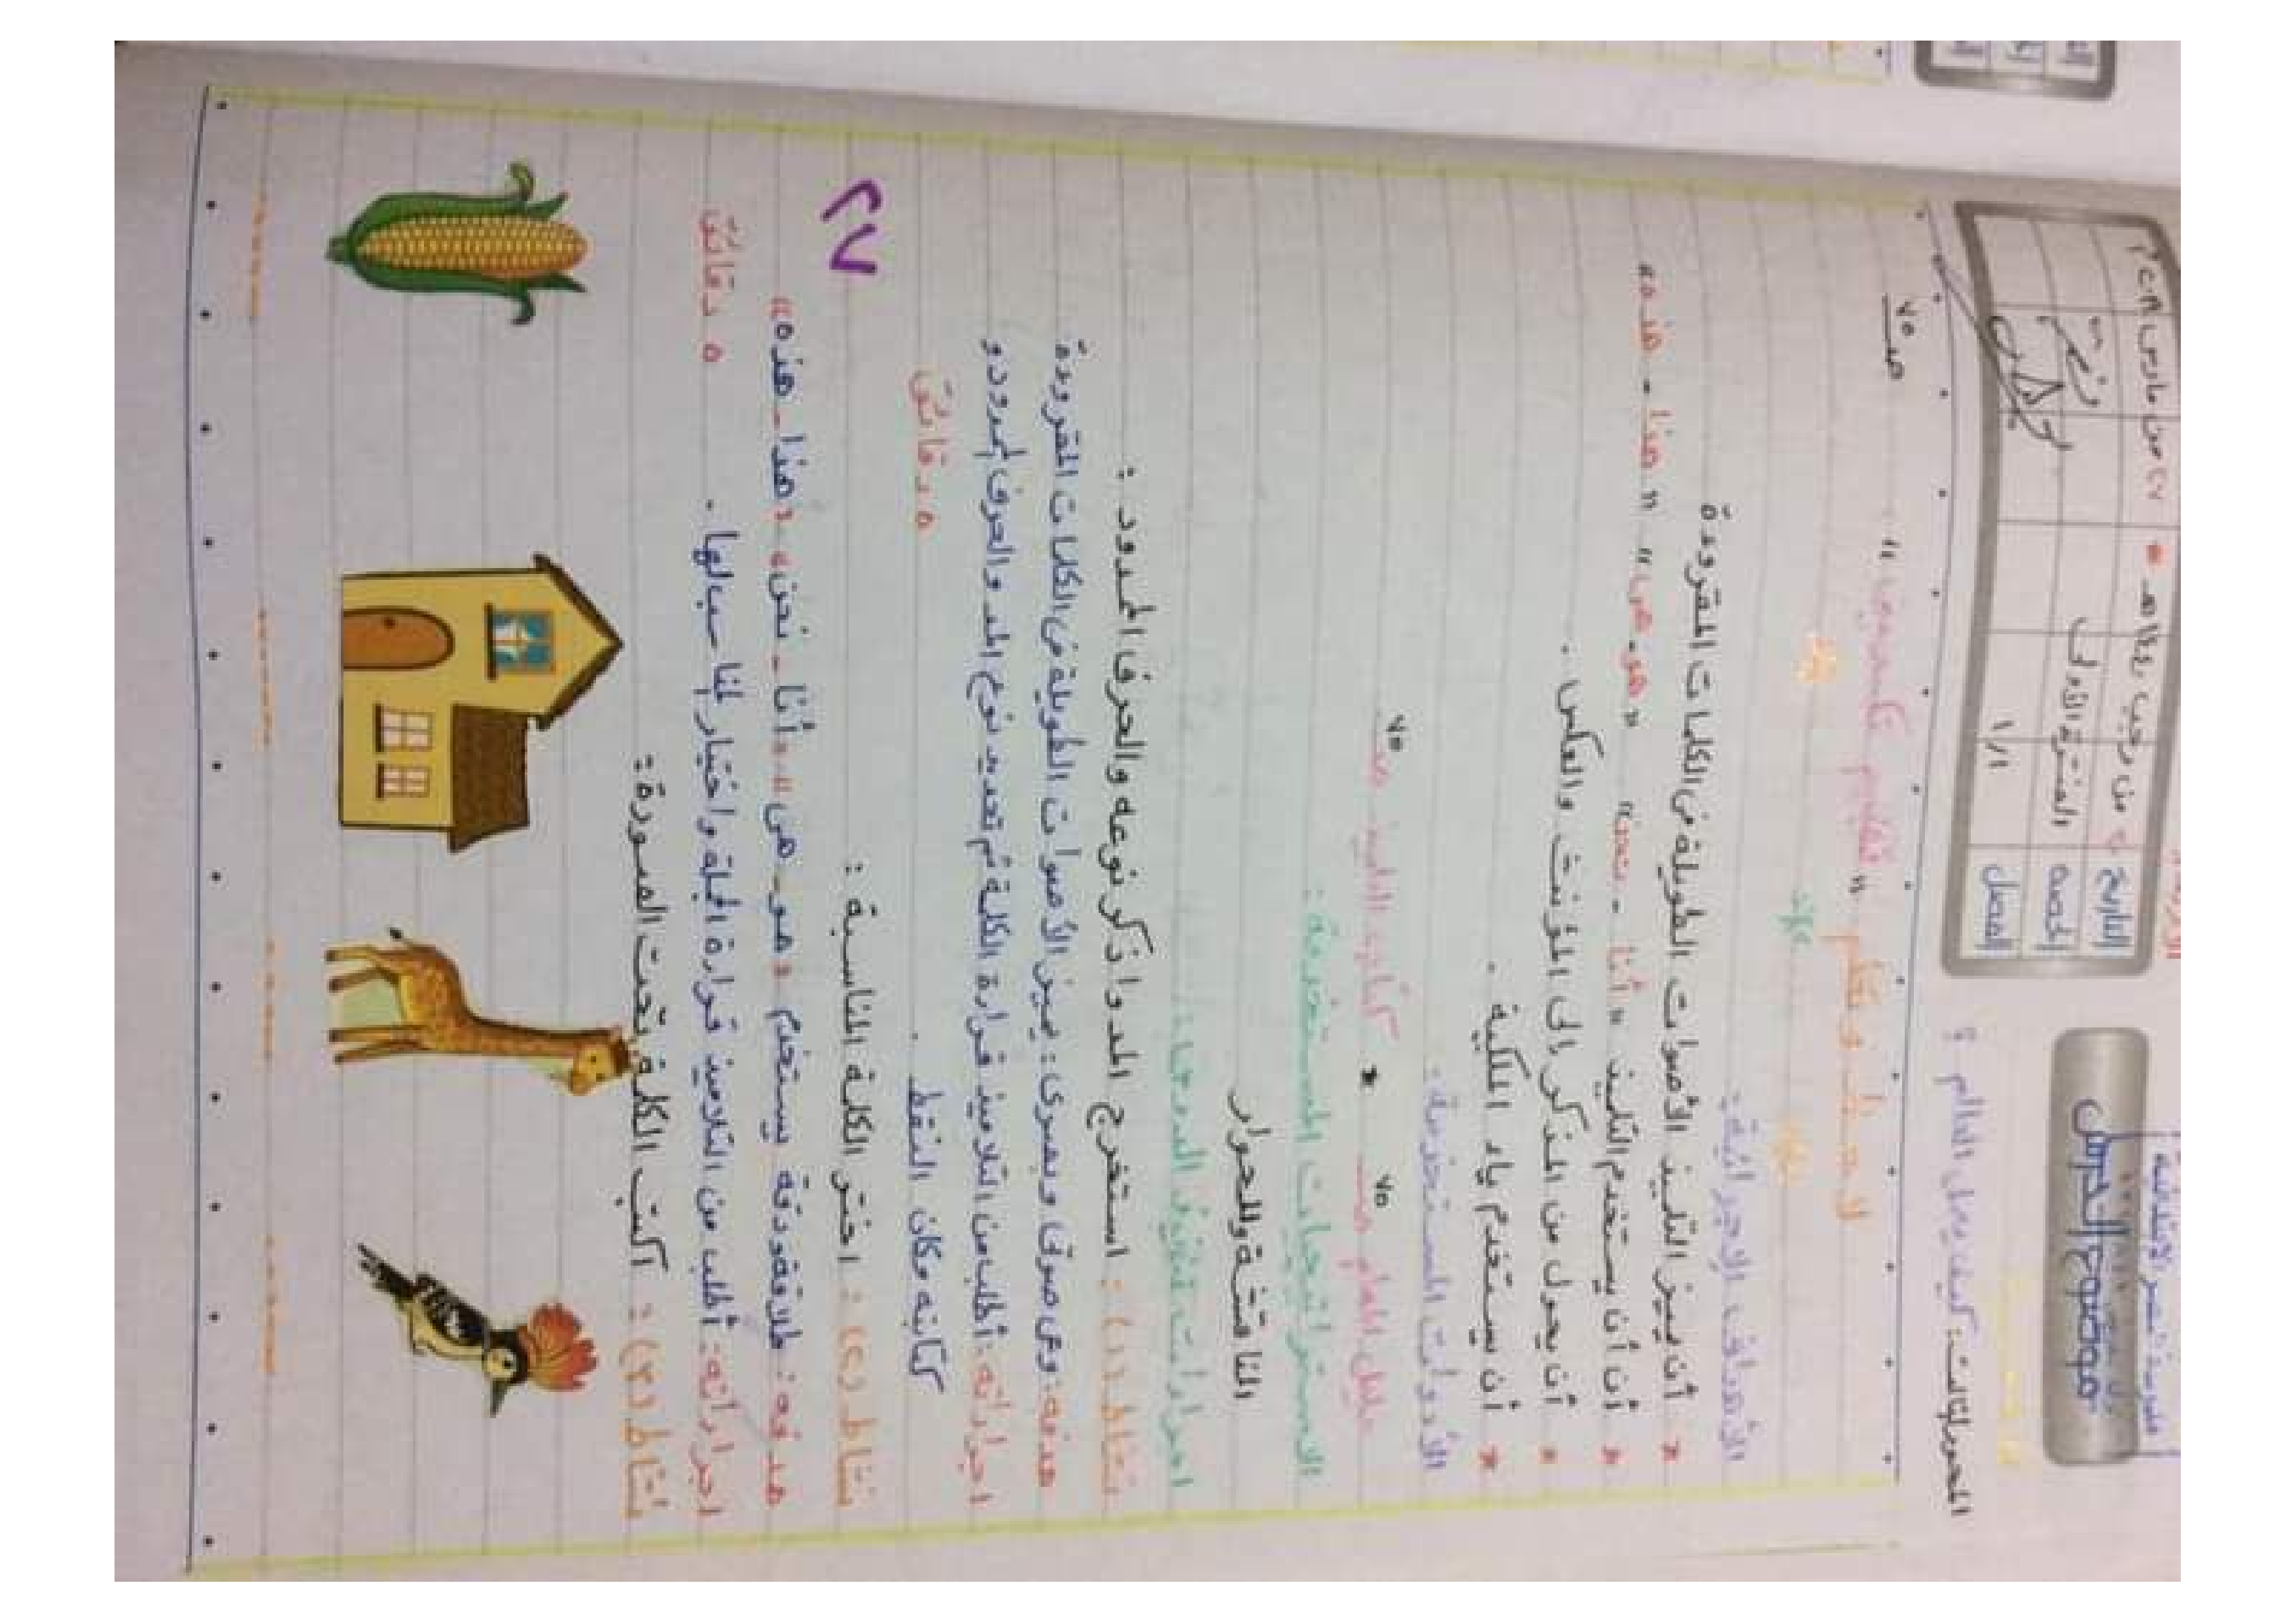 التاريخ
٥ من رجب ١٤٤١ هـ
الحصة
الفترة الأولى
الفصل
١/١
موضوع الدرس
المحور الثالث: كيف يعمل العالم ؟
لاحظ وتعلم
صـ ٧٥
الأهداف الإجرائية:
* أن يميز التلميذ الأصوات الطويلة فى الكلمات المقروءة
* أن أن يستخدم التلميذ "أنا - نحن" "هو - هى" "هذا - هذه"
* أن يحول من المذكر إلى المؤنث والعكس.
* أن يستخدم ياء الملكية.
الأدوات المستخدمة:
دليل المعلم صـ ٧٥ * كتاب التلميذ صـ ٧٥
الاستراتيجيات المستخدمة:
المناقشة والحوار
استخرج المد واذكر نوعه والحرف الممدود:
نشاط (١):
هدفه: وعى صوتى وبصرى: يميز الأصوات الطويلة فى الكلمات المقروءة
اجراءاته: أطلب من التلاميذ قراءة الكلمة ثم تحديد نوع المد والحرف الممدود و
كتابته مكان النقط. ٥ دقائق
نشاط (٢): اختر الكلمة المناسبة:
هدفه: طلاقة ودقة يستخدم "هو - هى" "أنا - نحن" "هذا - هذه"
اجراءاته: أطلب من التلاميذ قراءة الجملة واختيار لمناسب لها. ٥ دقائق
نشاط (٣): اكتب الكلمة تحت الصورة:
٢٧